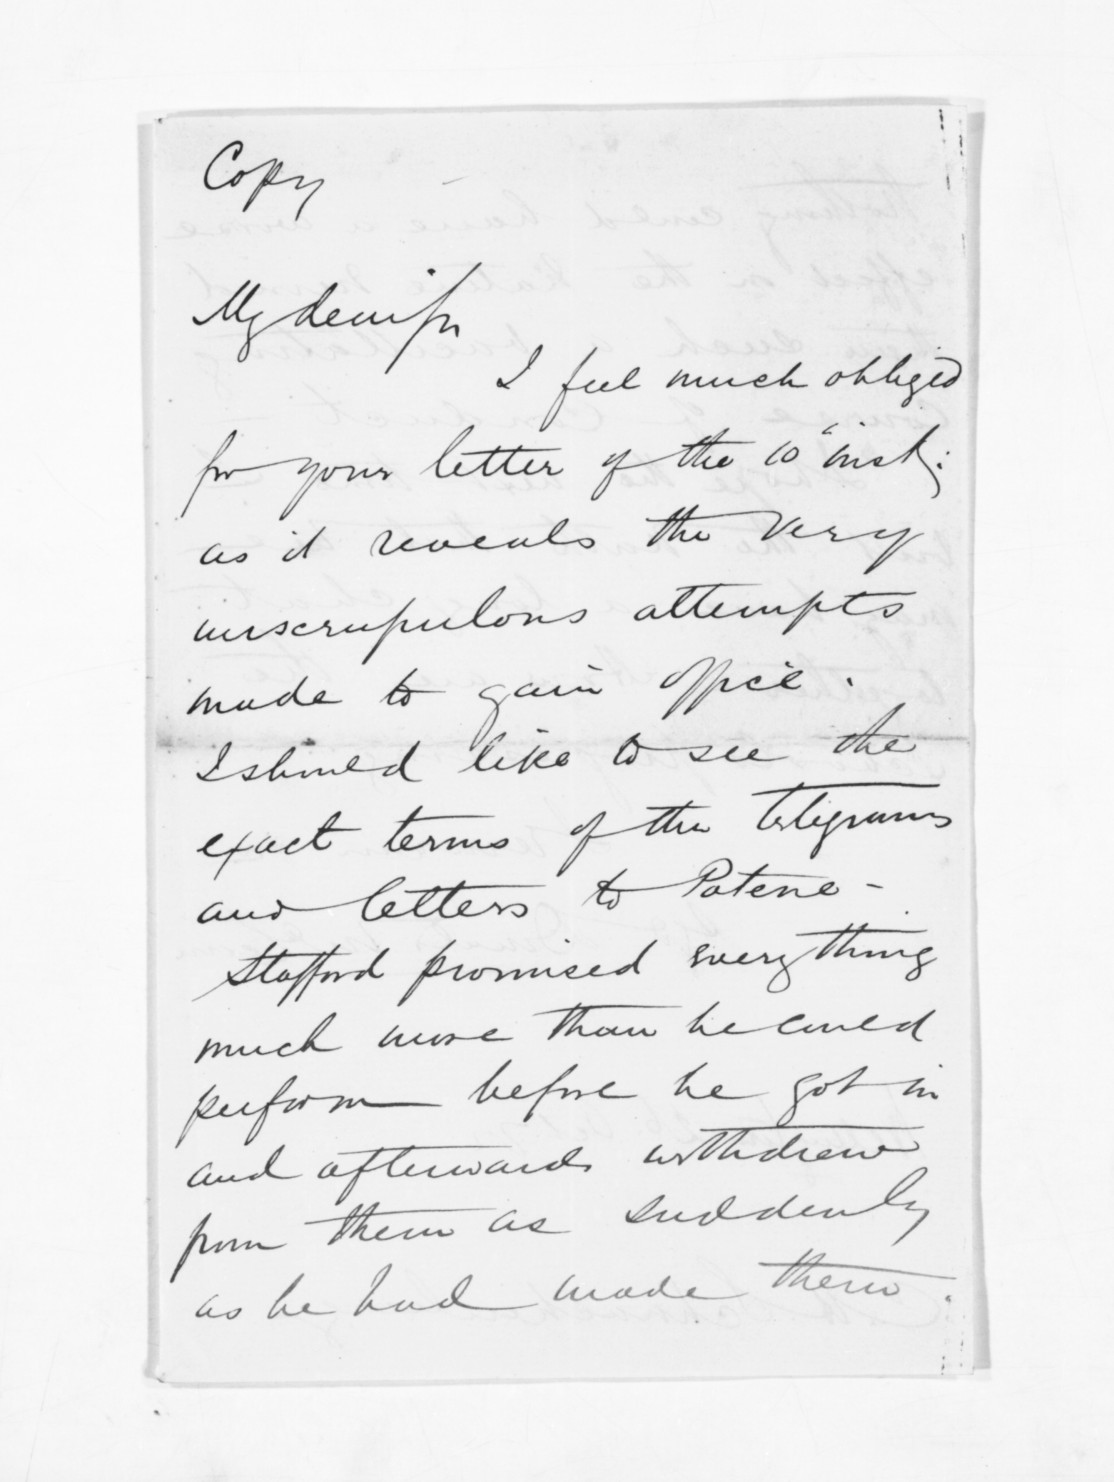 Copy
My dear Sir
I feel much obliged
for your letter of the 10" inst:
as it reveals the very
unscrupulous attempts
made to gain office.
I should like to see the
exact terms of the telegrams
and letters to Patene -
Stafford promised everything
much more than he could
perform before he got in
and afterwards withdrew
from them as suddenly
as he had made them.